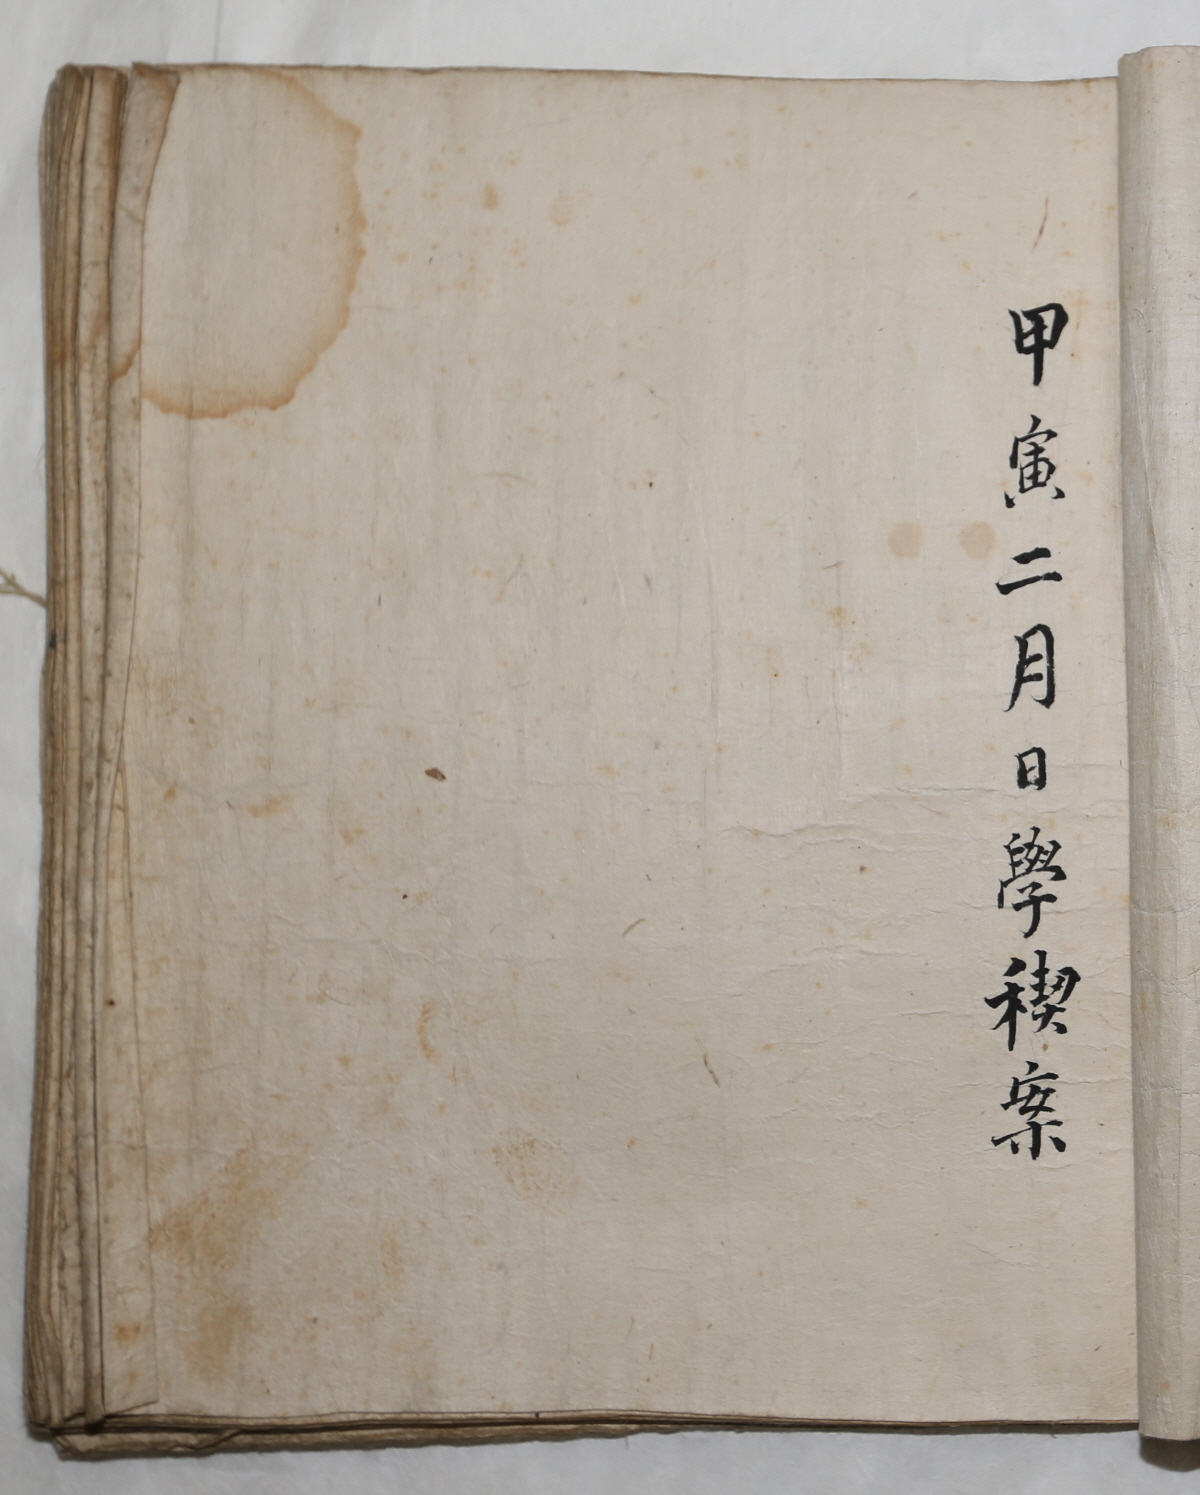 甲寅二月日學稧案